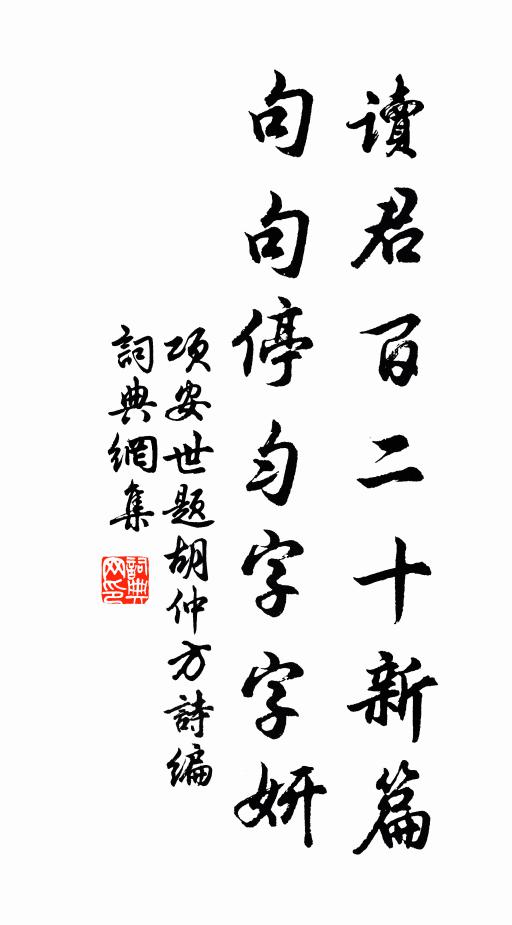 讀君百二十新篇
句句停勻字字妍
項安世题胡仲方詩編
詞典網集
詞典网印